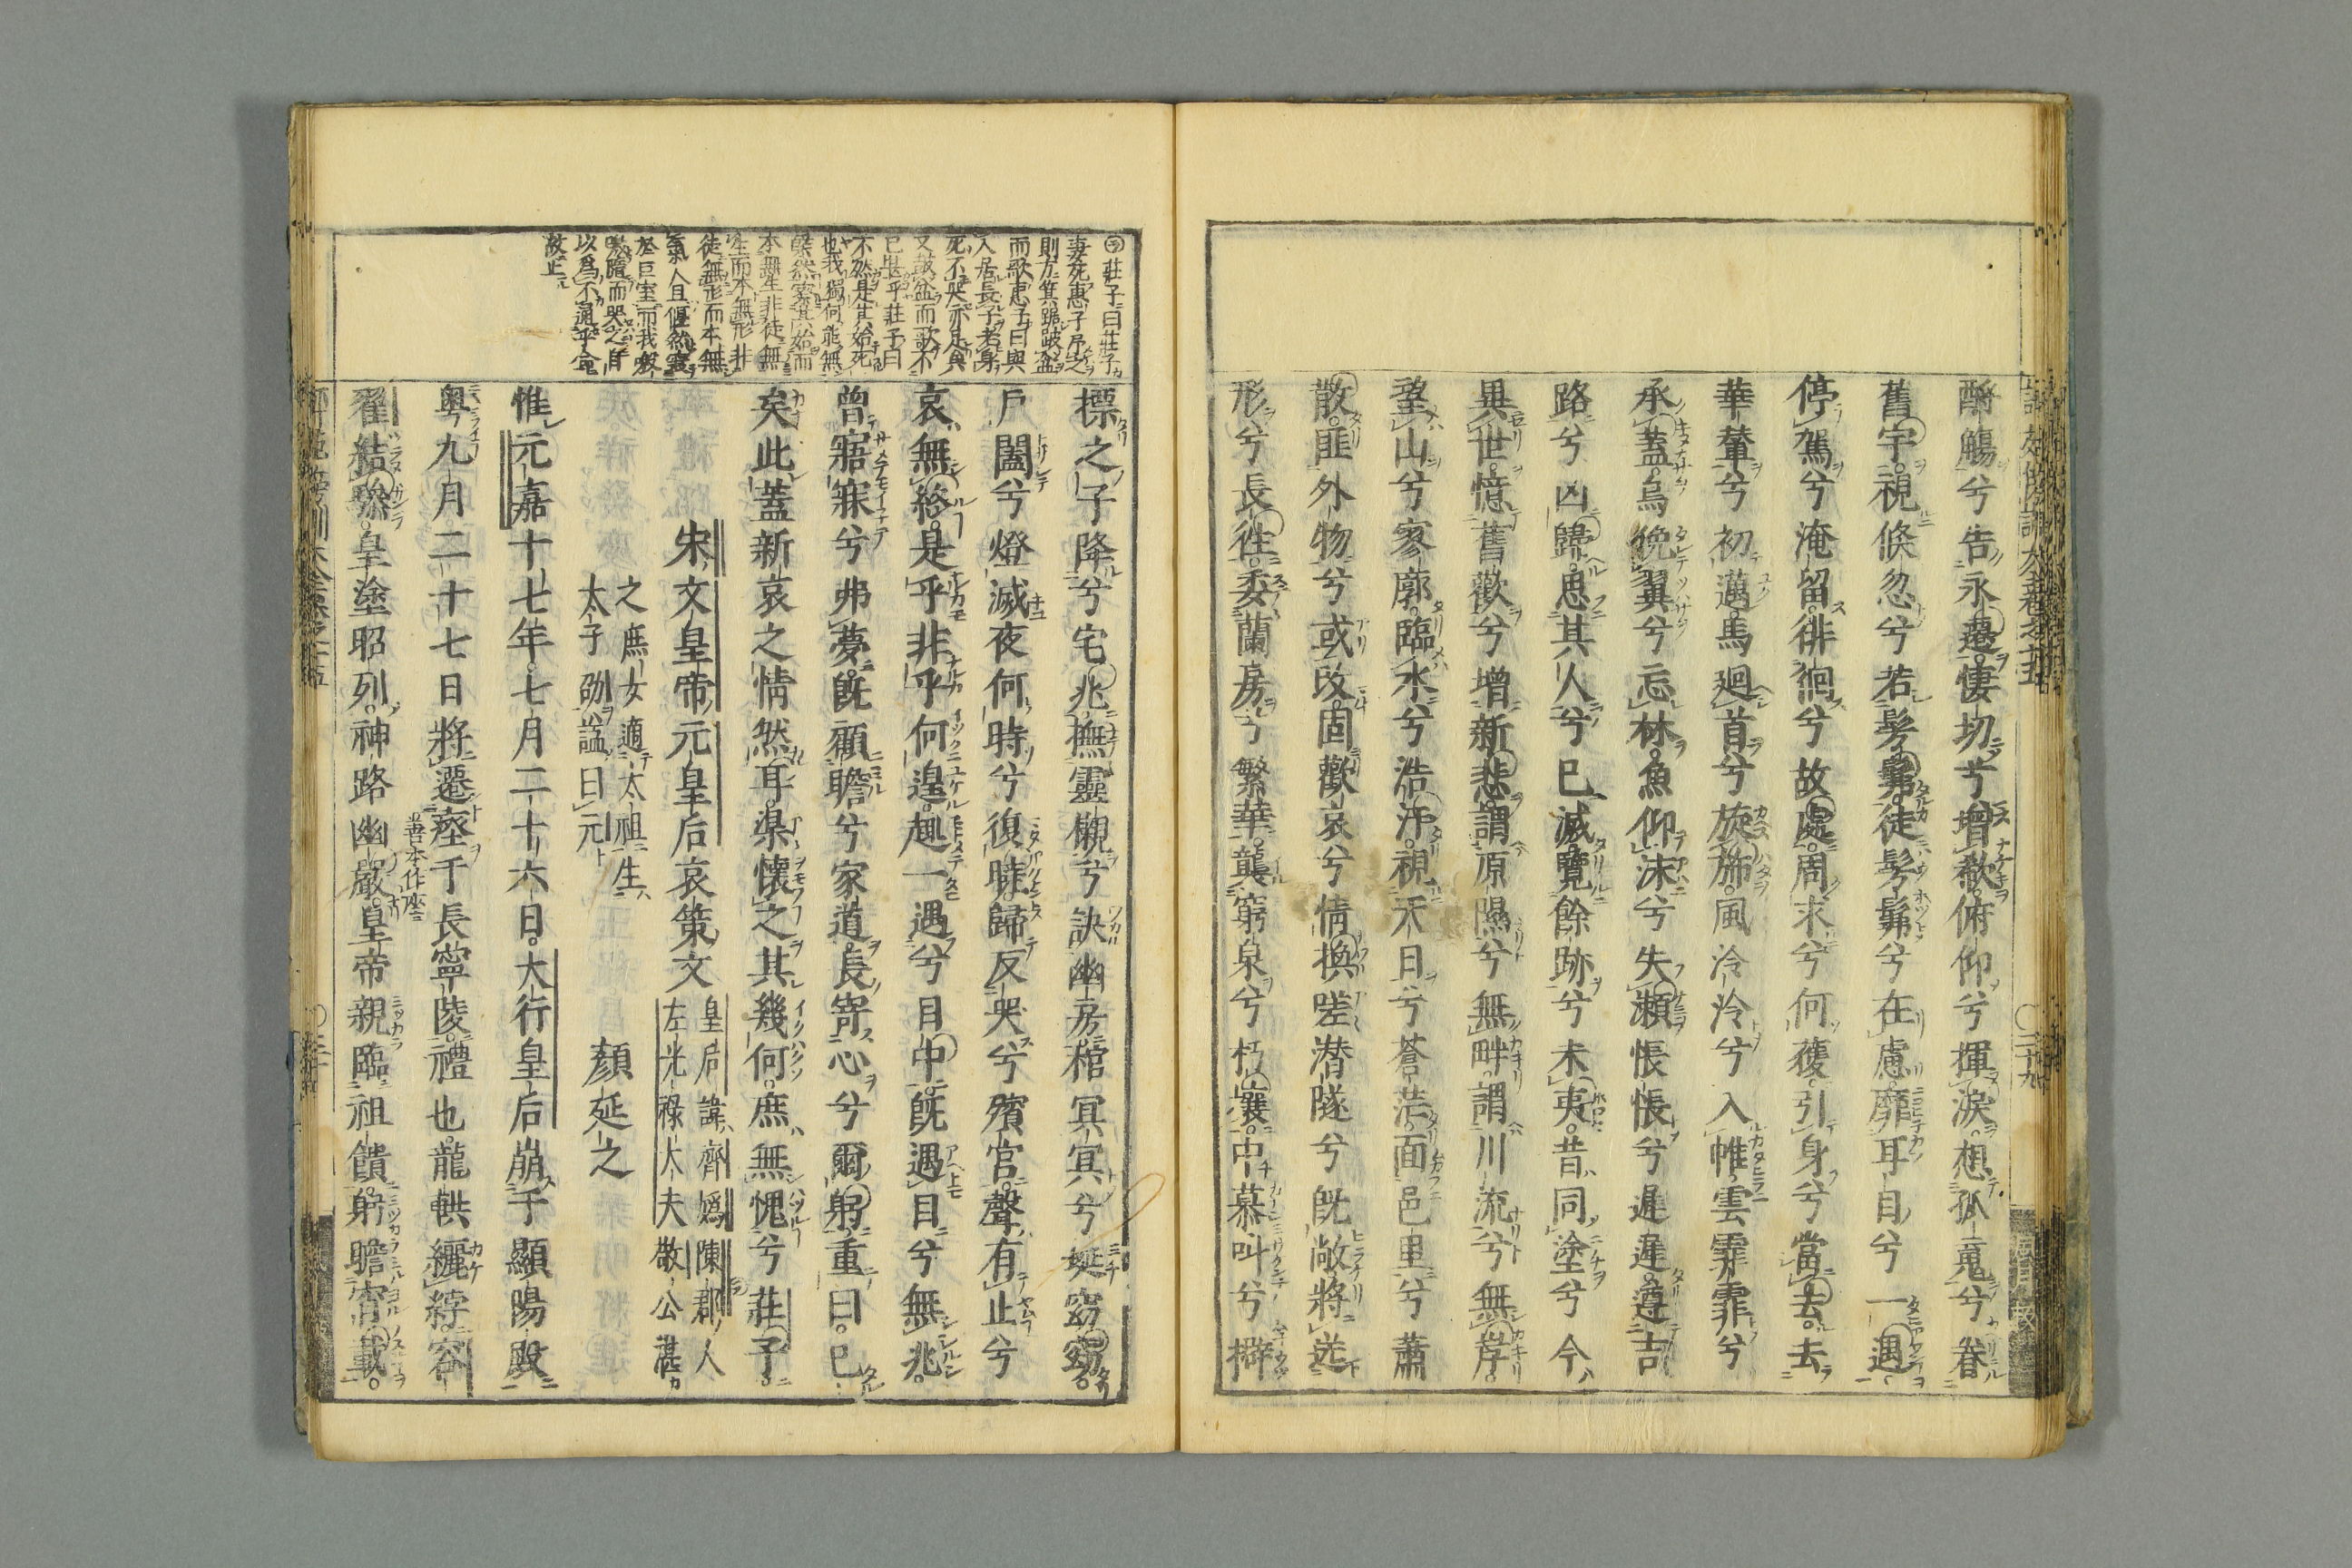 酹觴兮告永遷。悽切兮增欷。俯仰兮揮淚。想孤䰟兮眷
舊宇。視倏忽兮若髣髴。徒髣髴兮在慮。靡耳目兮一遇
停駕兮淹留。徘徊兮故處。周求兮何獲。引身兮當去。去
華輦兮初邁。馬廻首兮旋旆。風泠泠兮入帷。雲霏霏兮
承蓋。鳥俛翼兮忘林。魚仰沫兮失瀨。悵悵兮遲遲。遵吉
路兮凶歸。思其人兮已滅。覽餘跡兮未夷。昔同塗兮今
異世。憶舊歡兮增新悲。謂原隰兮無畔。謂川流兮無岸。
望山兮寥廓。臨水兮浩汗。視天日兮蒼茫。面邑里兮蕭
散。匪外物兮或改。固歡哀兮情換。嗟潜隧兮既敞。將送
形兮長徃。委蘭房兮繁華。襲窮泉兮朽壤。中慕叫兮擗
莊子曰莊子
妻死惠子弔之
則方箕踞鼓盆
而歌惠子曰與
人居長子老身
死不哭亦足矣
又鼓盆而歌不
已甚乎莊子曰
不然是其始死
也我獨何能無
槩然察其始而
本無生非徒無
生而本無形非
徒無形而本無
氣人且偃然寢
於巨室而我噭
噭隨而哭之自
以爲不通乎命
故止
摽之子降兮宅兆。撫靈櫬兮訣幽房。棺冥冥兮埏窈窈。
戶闔兮燈滅夜何時兮復曉。歸反哭兮殯宮。聲有止兮
哀無終。是乎非乎何遑。趣一遇兮目中。既遇目兮無兆。
曾寤寐兮弗夢。既顧瞻兮家道。長寄心兮爾躬。重曰。已
矣此蓋新哀之情然耳。渠懷之其幾何。庶無愧兮莊子。
宋文皇帝元皇后哀策文
皇后諱齊嬀陳郡人
左光祿大夫敬公湛
之庶女適太祖生
太子劭諡曰元
顏延之
惟元嘉十七年。七月二十六日。大行皇后崩于顯陽殿
粵九月二十七日將遷座于長寧陵。禮也。龍輁纚綍。容
善本作座
翟結驂。皇塗昭列。神路幽嚴。皇帝親臨祖饋。躬瞻宵載。